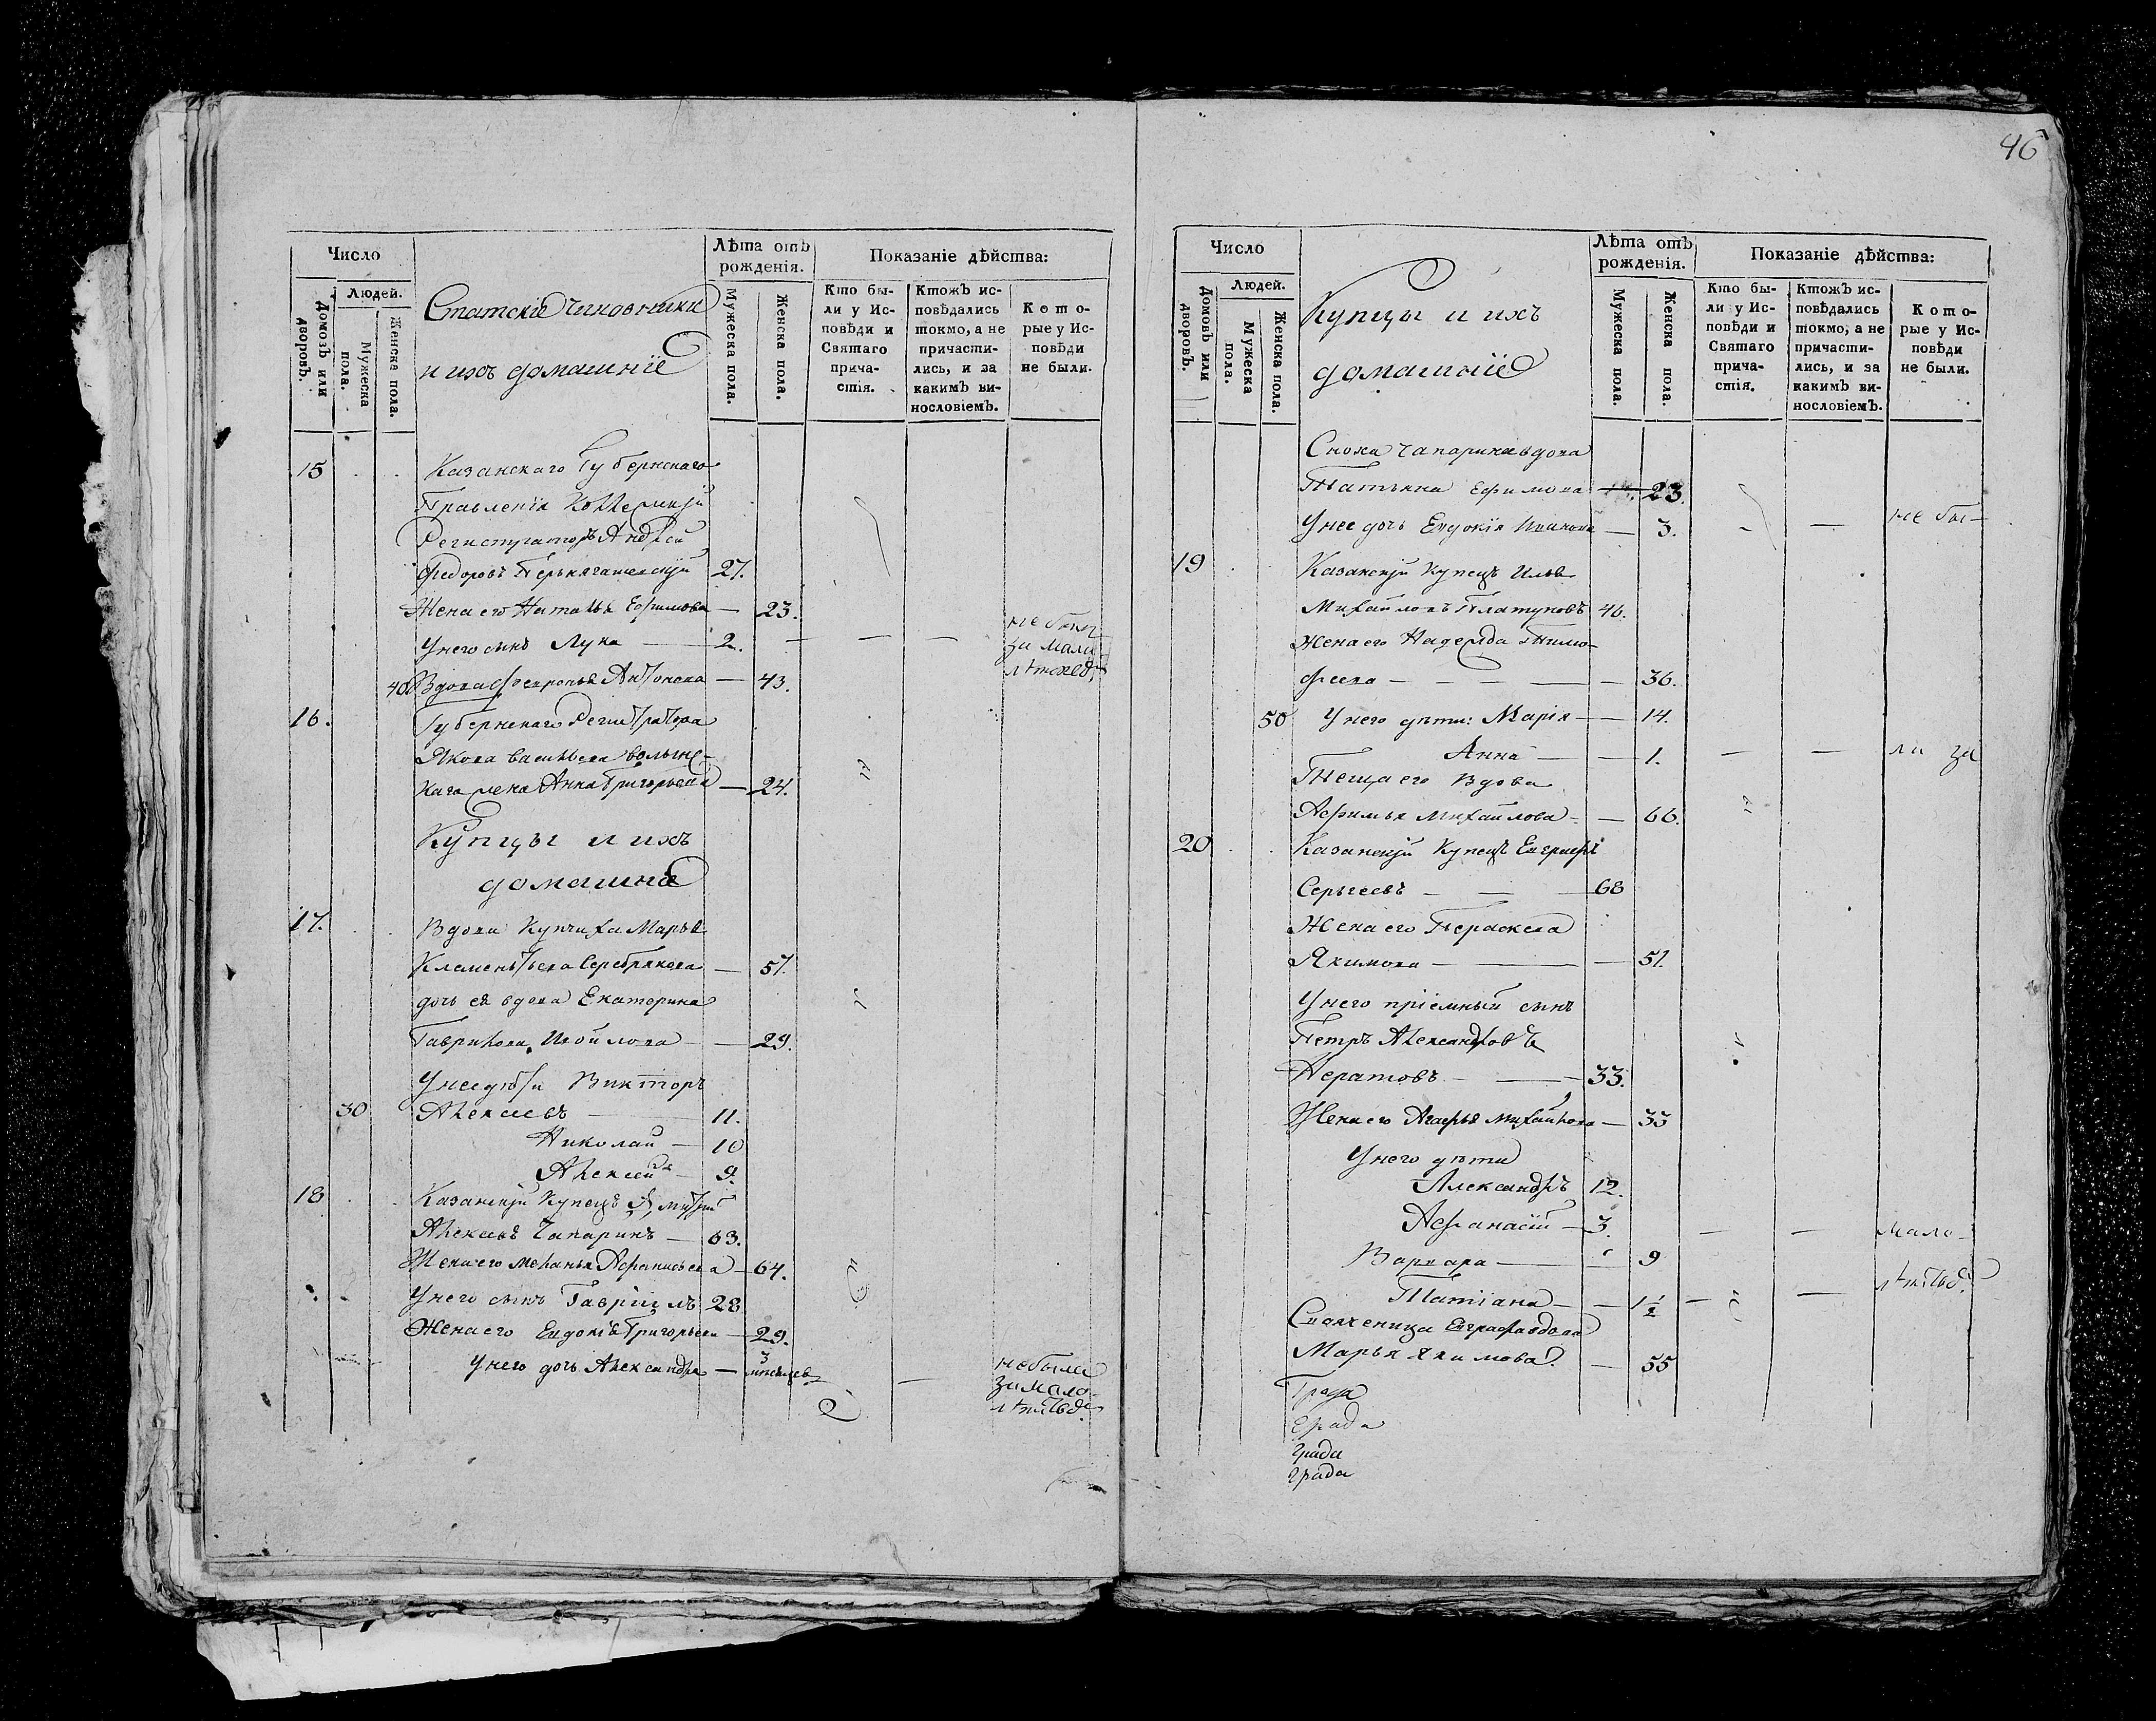 46
Число
Людей.
Домовъ или дворовъ.
Мужеска пола.
Женска пола.
Статскіе чиновники
и ихъ домашніе
Лѣта отъ рожденія.
Мужеска пола.
Женска пола.
Показаніе дѣйства:
Кто были у Исповѣди и Святаго причастія.
Ктожъ исповѣдались токмо, а не причастились, и за какимъ винословіемъ.
Которые у Исповѣди не были.
15 Казанскаго Губернскаго
Правленія Коллежскій
Регистраторъ Андрей
Федоровъ 27.
Жена его Наталья Ефимова — 23.
У него сынъ Лука — 2. — — — не были
за мало
лѣтствомъ
40 Вдова Февронья Антонова — 43.
16. Губернскаго Регистратора
Якова Васильева Волынс-
кага жена Анна Григорьева — 24.
Купцы и ихъ
домашніе
17. Вдова Купчиха Марья
Клементьева Серебрякова — 57.
дочь ея вдова Екатерина
Гаврилова Измойлова — 29.
У нее дѣти Викторъ
30 Алексеевъ — 11.
Николай — 10
Алексей — 9.
18 Казанскій Купецъ Дмитрий
Алексеевъ Чапаринъ — 63.
Жена его Меланья Афанасьева — 64.
У него сынъ Гавріилъ 28
Жена его Евдокія Григорьева — 29.
У него дочь Александра — 3 мѣсяцевъ — не были
за мало-
лѣтствомъ
Число
Людей.
Домовъ или дворовъ.
Мужеска пола.
Женска пола.
Купцы и ихъ
домашніе
Лѣта отъ рожденія.
Мужеска пола.
Женска пола.
Показаніе дѣйства:
Кто были у Исповѣди и Святаго причастія.
Ктожъ исповѣдались токмо, а не причастились, и за какимъ винословіемъ.
Которые у Исповѣди не были.
Сноха Чапарина вдова
Татьяна Ефимова — 23.
У нее дочь Евдокія Иванова — 3. — — не бы-
19 Казанскій Купецъ Илья
Михайловъ Платуновъ 46.
Жена его Надежда Тимо-
феева — — — — 36.
50 У него дѣти: Марія — — 14.
Анна — — 1. — — ли за
Теща его Вдова
Афимья Михайлова — — 66.
20 Казанскій Купецъ Евграфъ
Сергеевъ — — 68
Жена его Параскева
Якимова — — — 51.
У него пріемный сынъ
Петръ Александровъ
Нератовъ — — 33.
Жена его Агафья Михайлова — 33
У него дѣти
Александръ 12.
Афанасій — 3. — — мало-
Варвара — 9
Татіана — — 1½ — — лѣтствомъ
Свояченица Евграфа вдова
Марья Якимова. — 55
Града
Града
Града
Града